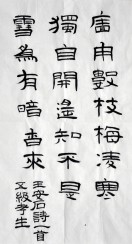 牆角數枝梅凌寒
獨自開遙知不是
雪為有暗香來
王安石詩一首